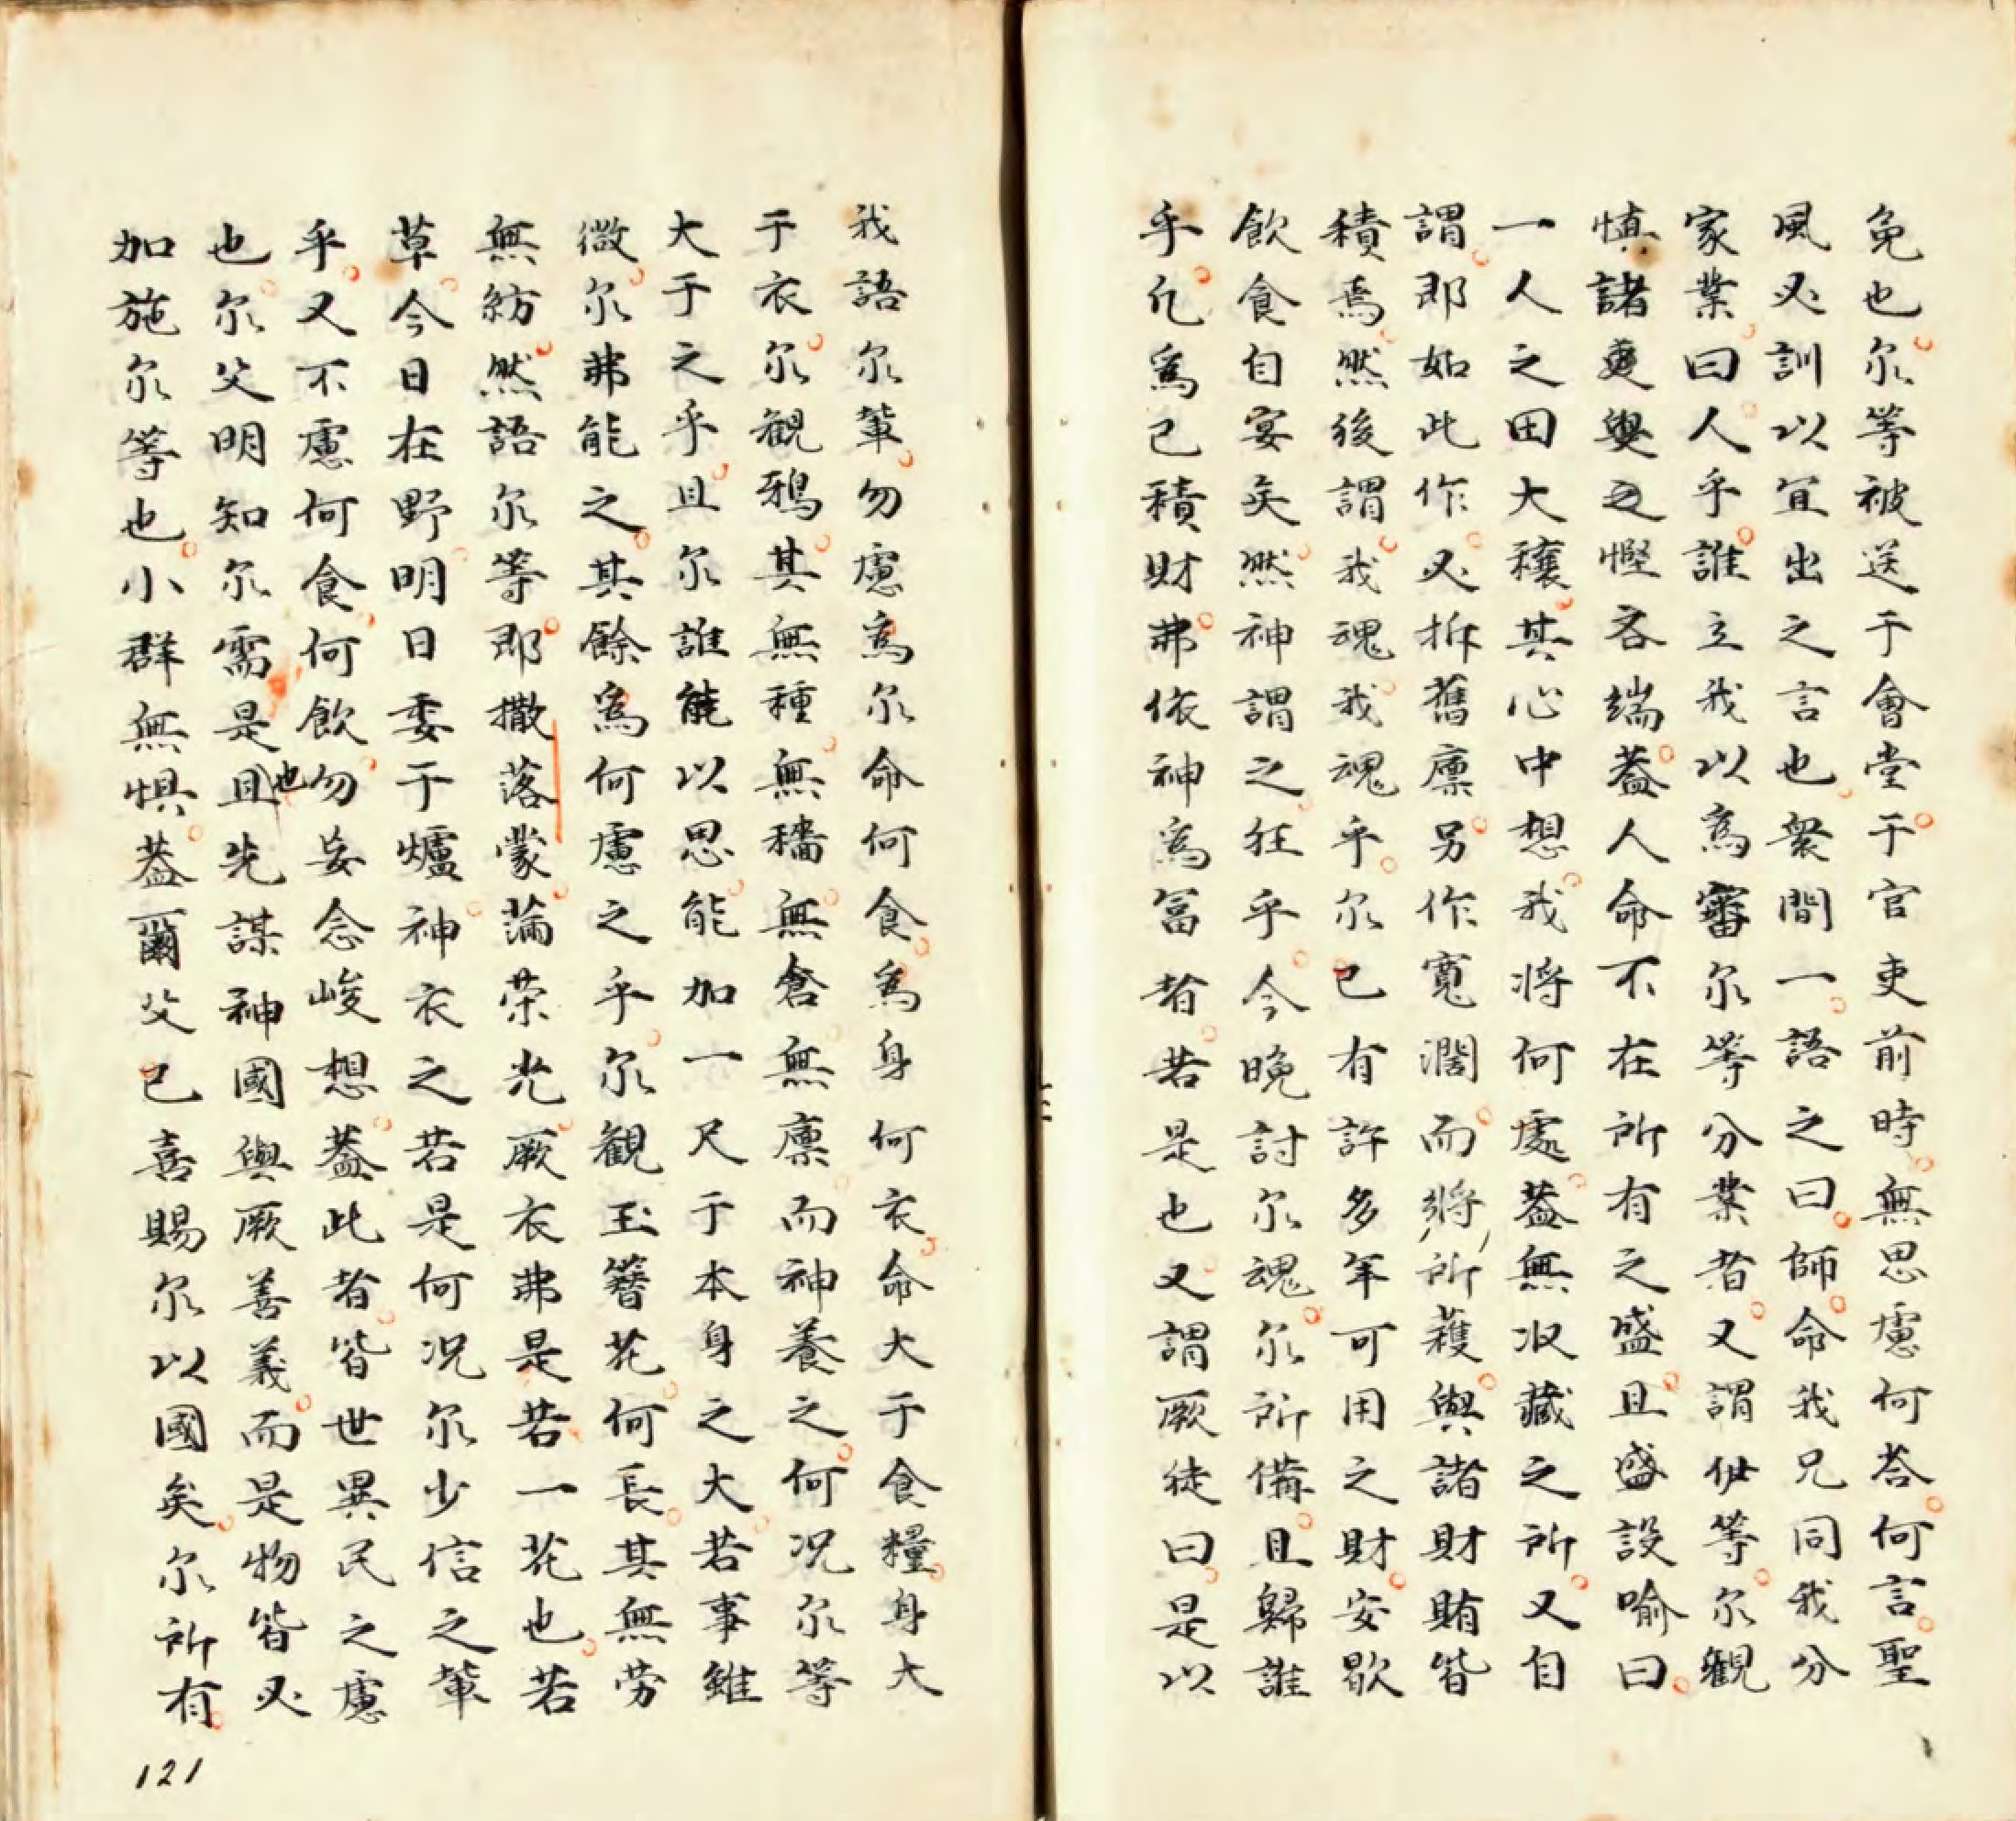 免也尔等被送于會堂于官吏前時無思慮何荅何言聖
風必訓以宜出之言也衆間一語之曰師命我兄同我分
家業曰人乎誰立我以為審尔等分業者又謂伊等尔觀
慎諸更與之慳吝端葢人命不在所有之盛且盛設喻曰
一人之田大穰其心中想我将何處葢無収藏之所又自
謂即如此作必拆舊廪另作寬濶而将所蘀與諸財賄皆
積焉然後謂我魂我魂乎尔已有許多年可用之財安歇
飲食自宴矣然神謂之狂乎今晚討尔魂尔所備且歸誰
乎凢為己積財弗依神為冨者若是也又謂厥徒曰是以
我語尔輩勿慮為尔命何食為身何衣命大于食糧身大
于衣尔觀鴉其無種無穡無倉無廪而神養之何况尔等
大于之乎且尔誰能以思能加一尺于本身之大若事雖
微尔弗能之其餘為何慮之乎尔觀玉簪花何長其無劳
無紡然語尔等即撒落蒙滿荣光厥衣弗是若一花也若
草今日在野明日委于爐神衣之若是何况尔少信之輩
乎又不慮何食何飲勿妄念峻想葢此者皆世異民之慮
也尔父明知尔需是也且先謀神國與厥善義而是物皆必
加施尔等也小群無惧葢爾父已喜賜尔以國矣尔所有
121